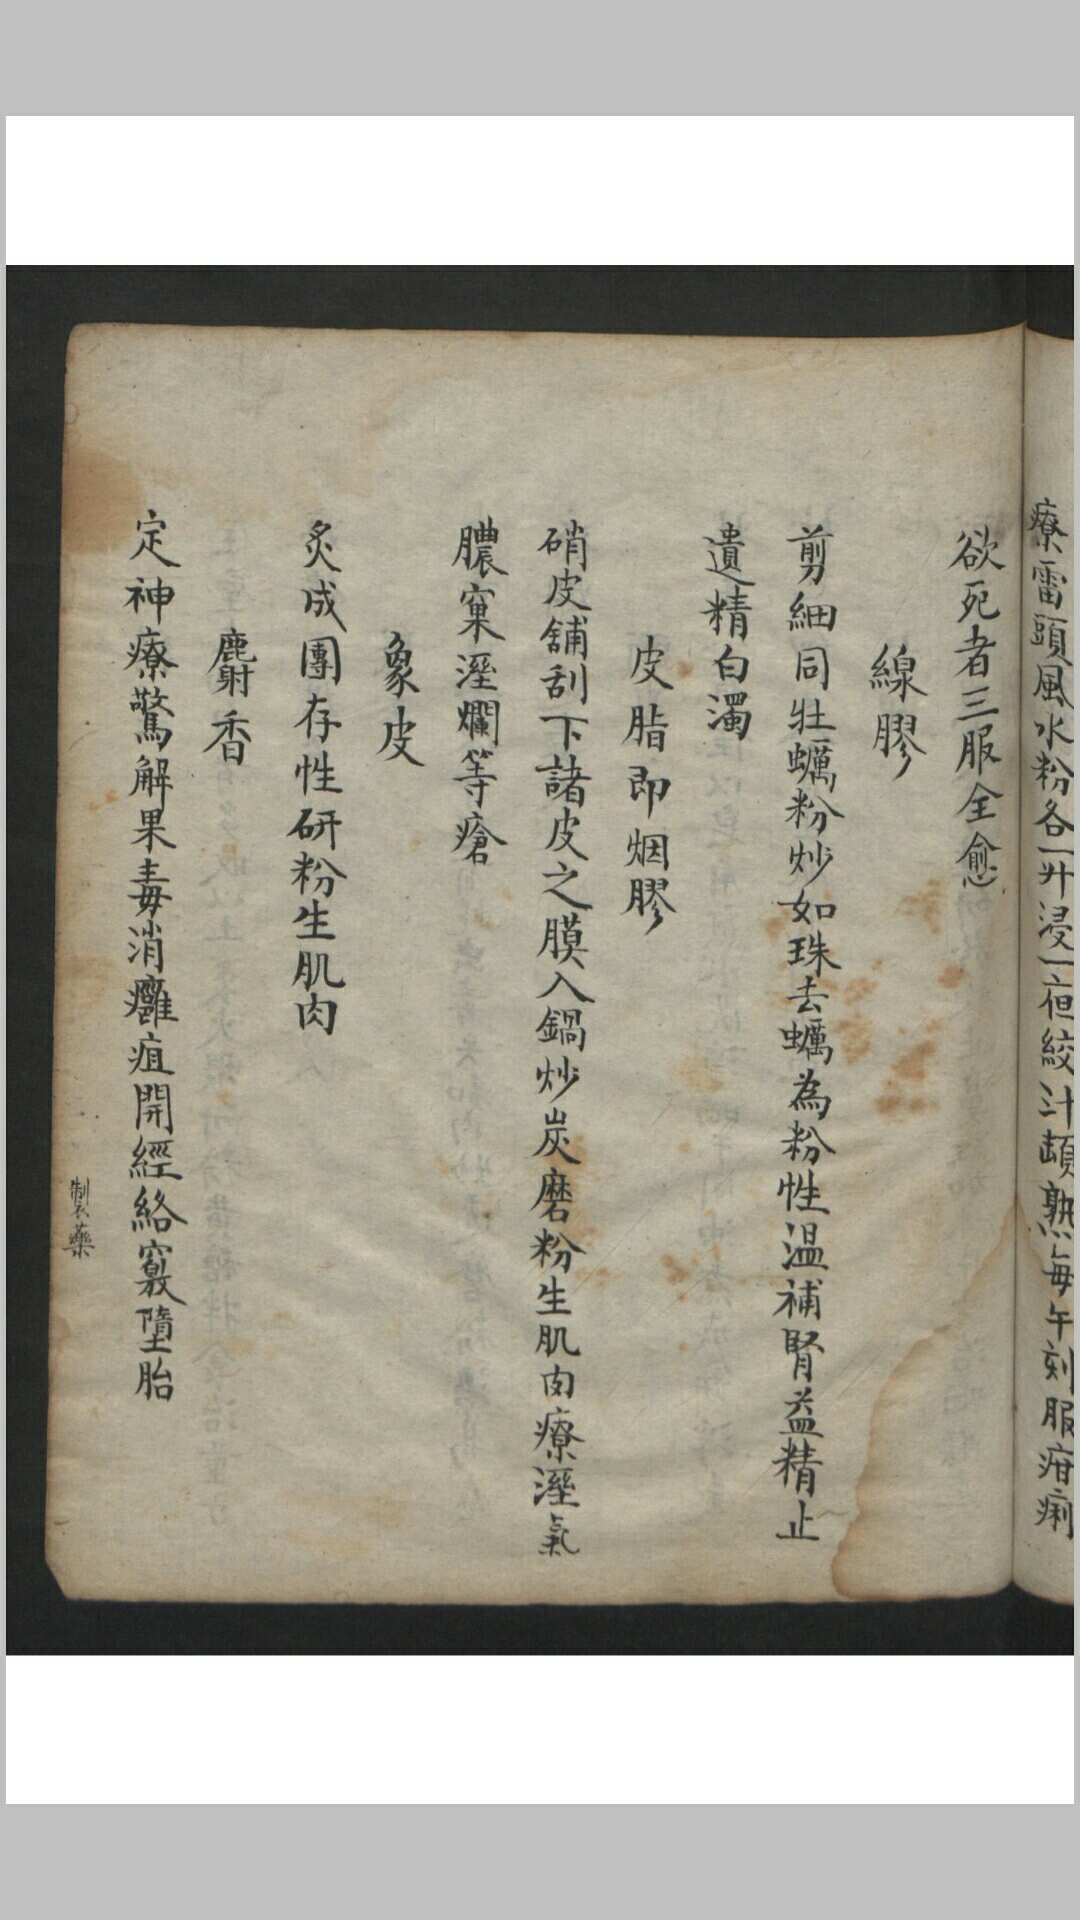 療雷頭風水粉各一升浸一宿絞汁頓熟每午刻服疳痢
欲死者三服全愈
線膠
剪細同牡蠣粉炒如珠去蠣為粉性温補腎益精止
遺精白濁
皮脂即烟膠
硝皮舖刮下諸皮之膜入鍋炒炭磨粉生肌肉療溼氣
膿窠溼爛等瘡
象皮
炙成團存性研粉生肌肉
麝香
定神療驚解果毒消癰疽開經絡竅墮胎
製藥